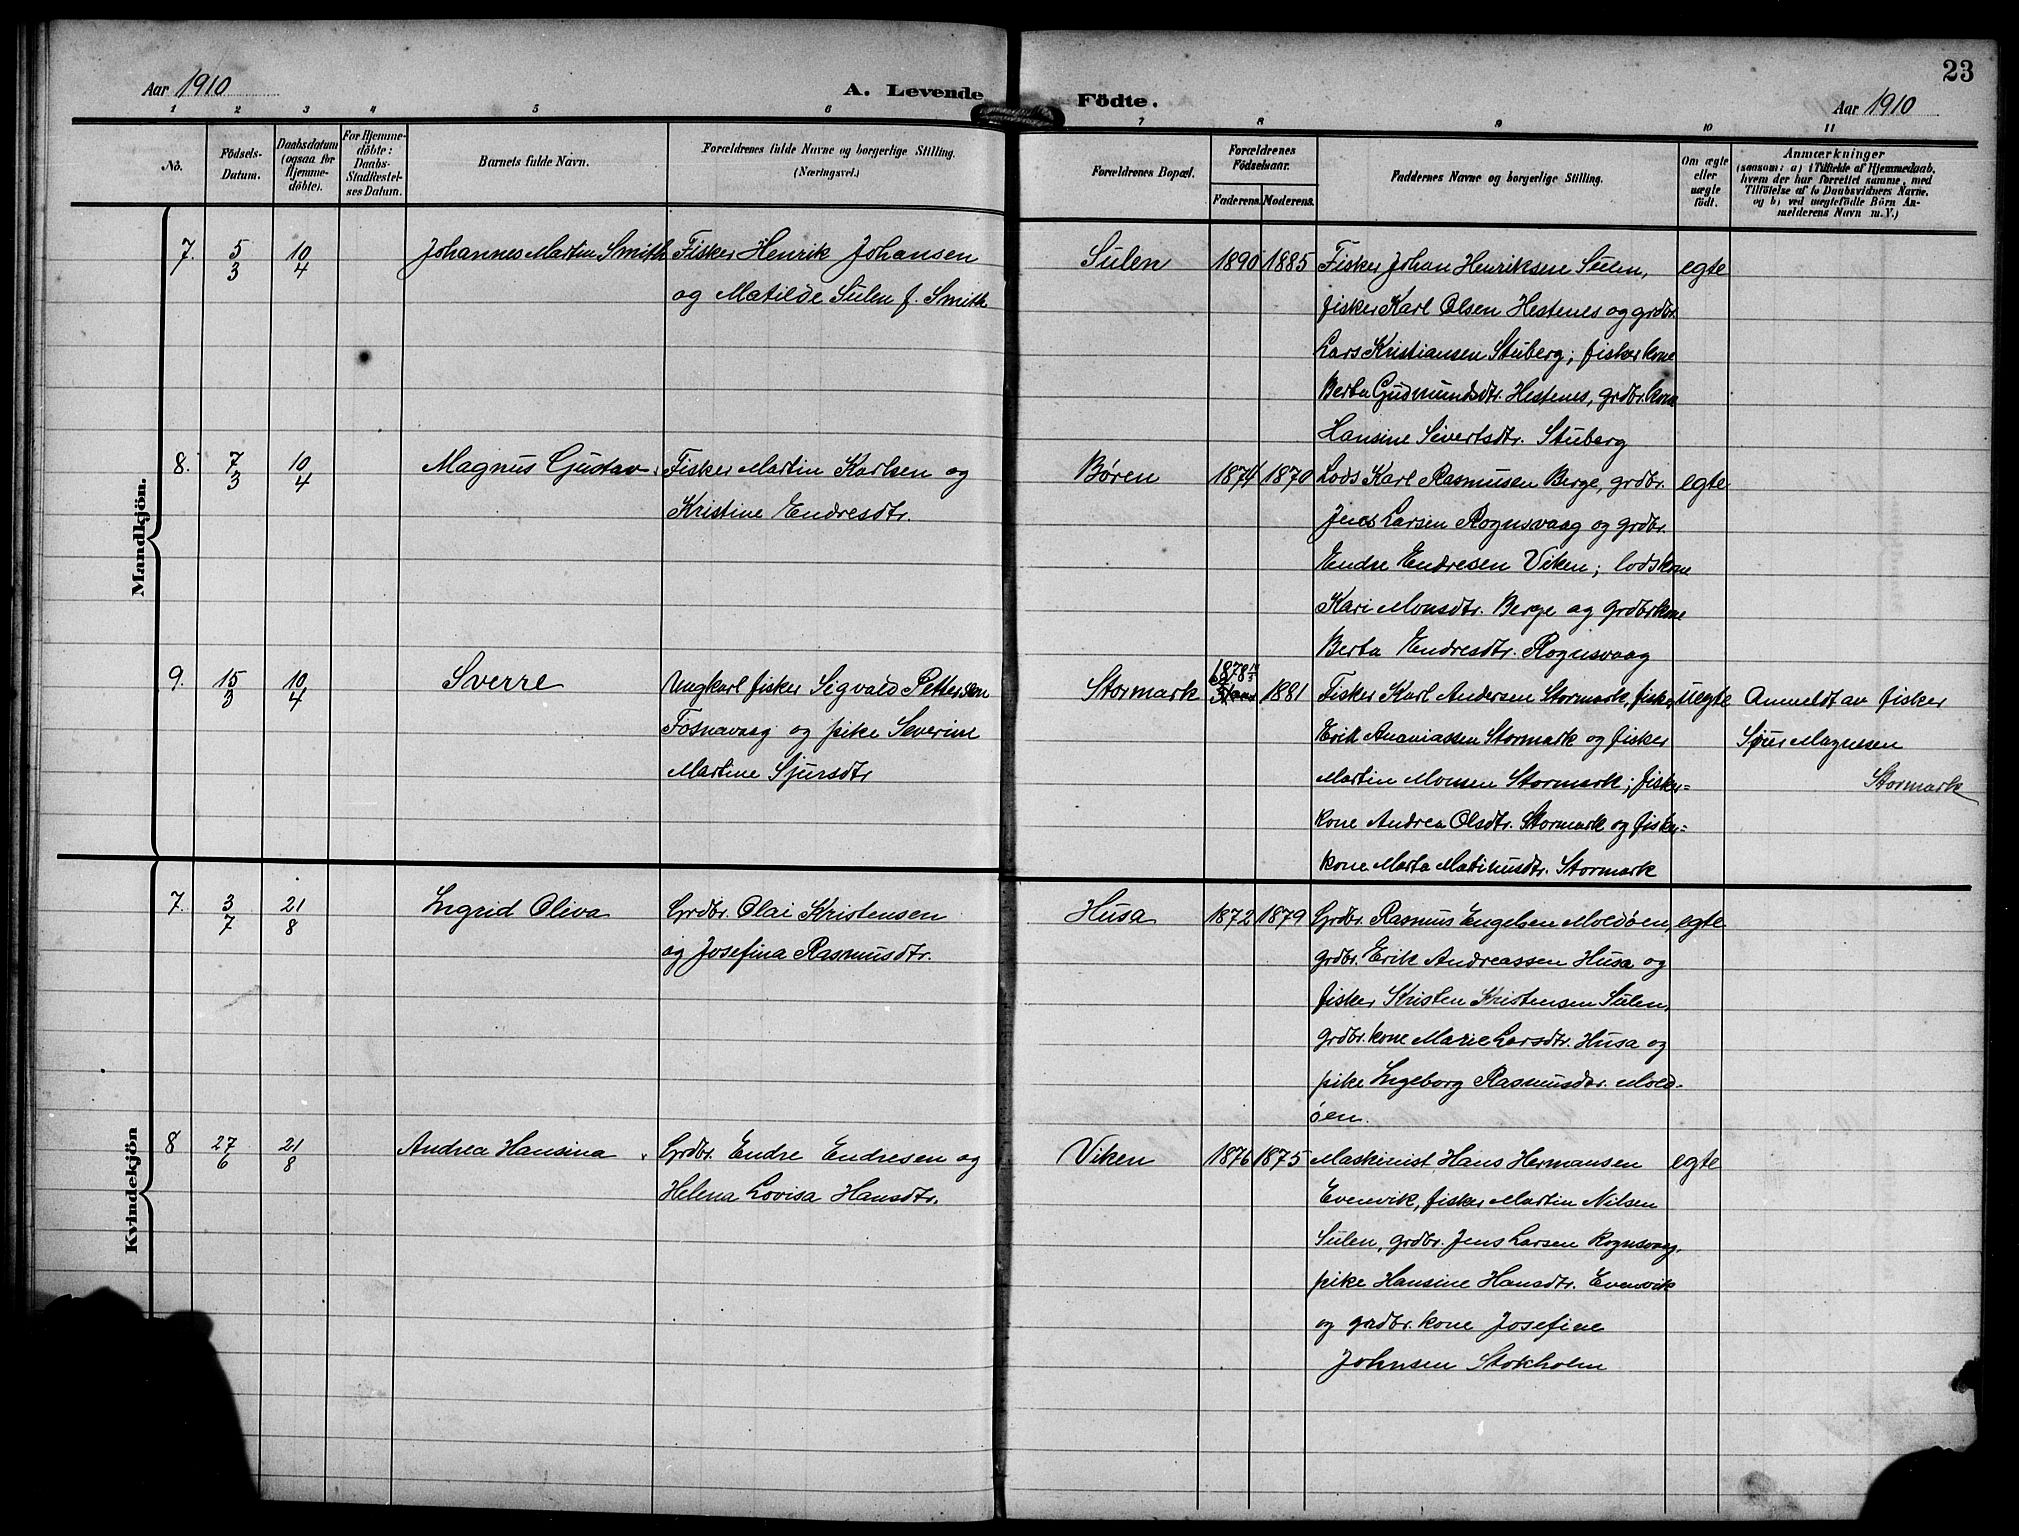 Aar 1910
A. Levende
Födte.
23
Aar 1910
1 2 3 4 5 6 7 8 9 10 11
No.
Födsels-
Datum.
Daabsdatum
(ogsaa for
Hjemme-
döbte).
For Hjemme-
döbte:
Daabs-
Stadfestel-
ses Datum.
Barnets fulde Navn.
Forældrenes fulde Navne og borgerlige Stilling.
(Næringsvei.)
Forældrenes Bopæl.
Forældrenes
Födselsaar.
Faderens.
Moderens.
Faddernes Navne og borgerlige Stilling.
Om ægte
eller
uægte
födt.
Anmærkninger
(saasom: a) i Tilfælde af Hjemmedaab,
hvem der har forrettet samme, med
Tilföielse af to Daabsvidners Navne.
og b) ved uægtefödte Börn An-
melderens Navn m.V.)
Mandkjön.
7. 5/3 10/4 Johannes Martin Smith Fisker Henrik Johansen
og Matilde Sulen f. Smith
Sulen 1890 1885 Fisker Johan Henriksen Sulen, egte
fisker Karl Olsen Hestenes og grdbr.
Lars Kristiansen Stuberg; fisker kone
Berta Gudmundsdtr. Hestenes, grdbr. kone
Hansine Sivertsdtr. Stuberg
8. 7/3 10/4 Magnus Gustav. Fisker Martin Karlsen og
Kristine Endresdtr.
Børen 1874 1870 Lods Karl Rasmusen Berge, grdbr. egte
Jens Larsen Rognsvaag og grdbr.
Endre Endresen Viken; lodskone
Kari Monsdtr. Berge og grdbrkone
Berta Endresdtr. Rognsvaag
9. 15/3 10/4 Sverre Ungkarl fisker Sigvald Pettersen
Fosnavaag og pike Severine
Martine Sjursdtr
Stormark 1878 1881 Fisker Karl Andersen Stormark, fisker uegte Anmeldt av fisker
Erik Ananiassen Stormark og fisker
Sjur Magnusen
Martin Monsen Stormark; fisker-
Stormark
kone Andrea Olsdtr. Stormark og fisker-
kone Marta Mathiusdtr. Stormark
Kvindekjön
7. 3/7 21/8 Ingrid Oliva Grdbr. Olai Kristensen
og Josefina Rasmusdtr.
Husa 1872 1879 Grdbr. Rasmus Engelsen Moldøen, egte
grdbr. Erik Andreassen Husa og
fisker Kristen Kristensen Sulen,
grdbr. kone Marie Larsdtr. Husa og
pike Ingeborg Rasmusdtr. Mold-
øen.
8 27/6 21/8 Andrea Hansina. Grdbr. Endre Endresen og
Helena Lovisa Hansdtr.
Viken 1876 1875 Maskinist Hans Hermansen egte
Evenvik, fisker Martin Nilsen
Sulen, grdbr. Jens Larsen Rognsvaag.
pike Hansine Hansdtr. Evenvik
og grdbr. kone Josefine
Johnsen Stokholm